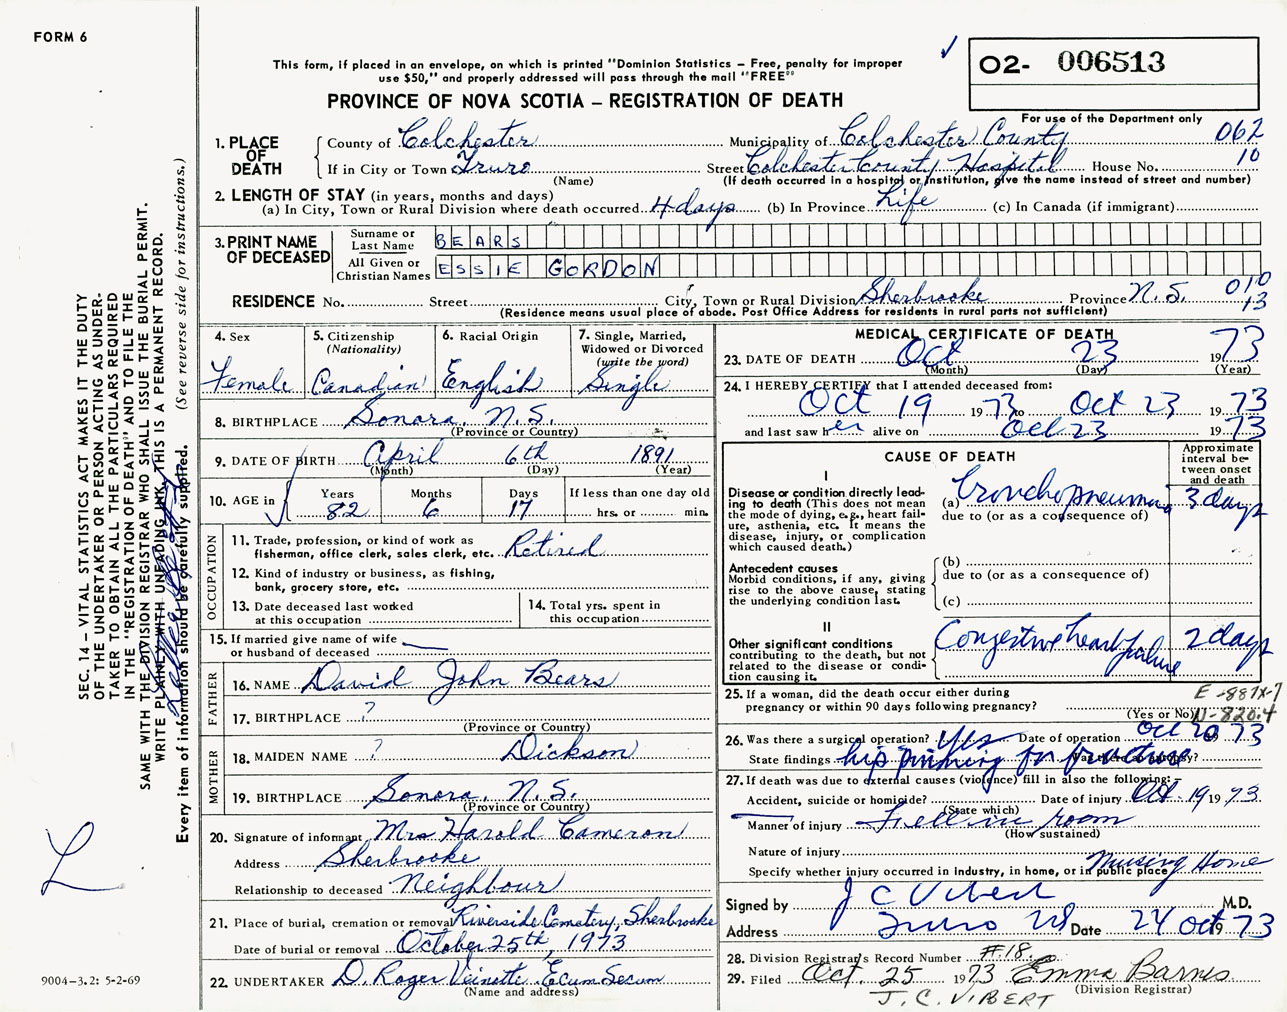 FORM 6
This form, if placed in an envelope, on which is printed "Dominion Statistics – Free, penalty for improper
use $50," and properly addressed will pass through the mail "FREE"
PROVINCE OF NOVA SCOTIA – REGISTRATION OF DEATH
O2- 006513
For use of the Department only
1. PLACE OF DEATH
County of Colchester Municipality of Colchester County 062
If in City or Town Truro Street Colchester County Hospital House No. 10
(Name) (If death occurred in a hospital or institution, give the name instead of street and number)
2. LENGTH OF STAY (in years, months and days)
(a) In City, Town or Rural Division where death occurred 4 days (b) In Province Life (c) In Canada (if immigrant)
3. PRINT NAME OF DECEASED
Surname or Last Name BEARS
All Given or Christian Names ESSIE GORDON
RESIDENCE No. Street City, Town or Rural Division Sherbrooke Province N.S. 010 13
(Residence means usual place of abode. Post Office Address for residents in rural parts not sufficient)
4. Sex Female
5. Citizenship (Nationality) Canadian
6. Racial Origin English
7. Single, Married, Widowed or Divorced (write the word) Single
8. BIRTHPLACE Sonora, N.S.
(Province or Country)
9. DATE OF BIRTH April 6th 1891
(Month) (Day) (Year)
10. AGE in Years 82 Months 6 Days 17 If less than one day old hrs. or min.
OCCUPATION
11. Trade, profession, or kind of work as
fisherman, office clerk, sales clerk, etc. Retired
12. Kind of industry or business, as fishing,
bank, grocery store, etc.
13. Date deceased last worked at this occupation
14. Total yrs. spent in this occupation
15. If married give name of wife
or husband of deceased
FATHER
16. NAME David John Bears
17. BIRTHPLACE ?
(Province or Country)
MOTHER
18. MAIDEN NAME ? Dickson
19. BIRTHPLACE Sonora, N.S.
(Province or Country)
20. Signature of informant Mrs Harold Cameron
Address Sherbrooke
Relationship to deceased Neighbour
21. Place of burial, cremation or removal Riverside Cemetery, Sherbrooke
Date of burial or removal October 25th, 1973
22. UNDERTAKER D. Roger Veinotte, Ecum Secum
(Name and address)
MEDICAL CERTIFICATE OF DEATH
23. DATE OF DEATH Oct 23 1973
(Month) (Day) (Year)
24. I HEREBY CERTIFY that I attended deceased from:
Oct 19 1973 to Oct 23 1973
and last saw her alive on Oct 23 1973
CAUSE OF DEATH
Approximate interval between onset and death
I
Disease or condition directly lead-
ing to death (This does not mean
the mode of dying, e.g., heart fail-
ure, asthenia, etc. It means the
disease, injury, or complication
which caused death.)
(a) bronchopneumonia 3 days
due to (or as a consequence of)
Antecedent causes
Morbid conditions, if any, giving
rise to the above cause, stating
the underlying condition last.
(b)
due to (or as a consequence of)
(c)
II
Other significant conditions
contributing to the death, but not
related to the disease or condi-
tion causing it.
Congestive heart failure 2 days
25. If a woman, did the death occur either during
pregnancy or within 90 days following pregnancy?
(Yes or No)
E-887X-7
N-820.4
26. Was there a surgical operation? Yes Date of operation Oct 20 1973
State findings hip pinning for fracture
27. If death was due to external causes (violence) fill in also the following:-
Accident, suicide or homicide? Date of injury Oct 19 1973
(State which)
Manner of injury Fell in room
(How sustained)
Nature of injury
Specify whether injury occurred in industry, in home, or in public place Nursing Home
Signed by J C Vibert M.D.
Address Truro NS Date 24 Oct 1973
28. Division Registrar's Record Number #18
29. Filed Oct. 25 1973 Emma Barnes
(Division Registrar)
J. C. VIBERT
SEC. 14 – VITAL STATISTICS ACT MAKES IT THE DUTY
OF THE UNDERTAKER OR PERSON ACTING AS UNDER-
TAKER TO OBTAIN ALL THE PARTICULARS REQUIRED
IN THE "REGISTRATION OF DEATH" AND TO FILE THE
SAME WITH THE DIVISION REGISTRAR WHO SHALL ISSUE THE BURIAL PERMIT.
WRITE PLAINLY WITH UNFADING INK, THIS IS A PERMANENT RECORD.
Every item of information should be carefully supplied. (See reverse side for instructions.)
9004-3.2: 5-2-69